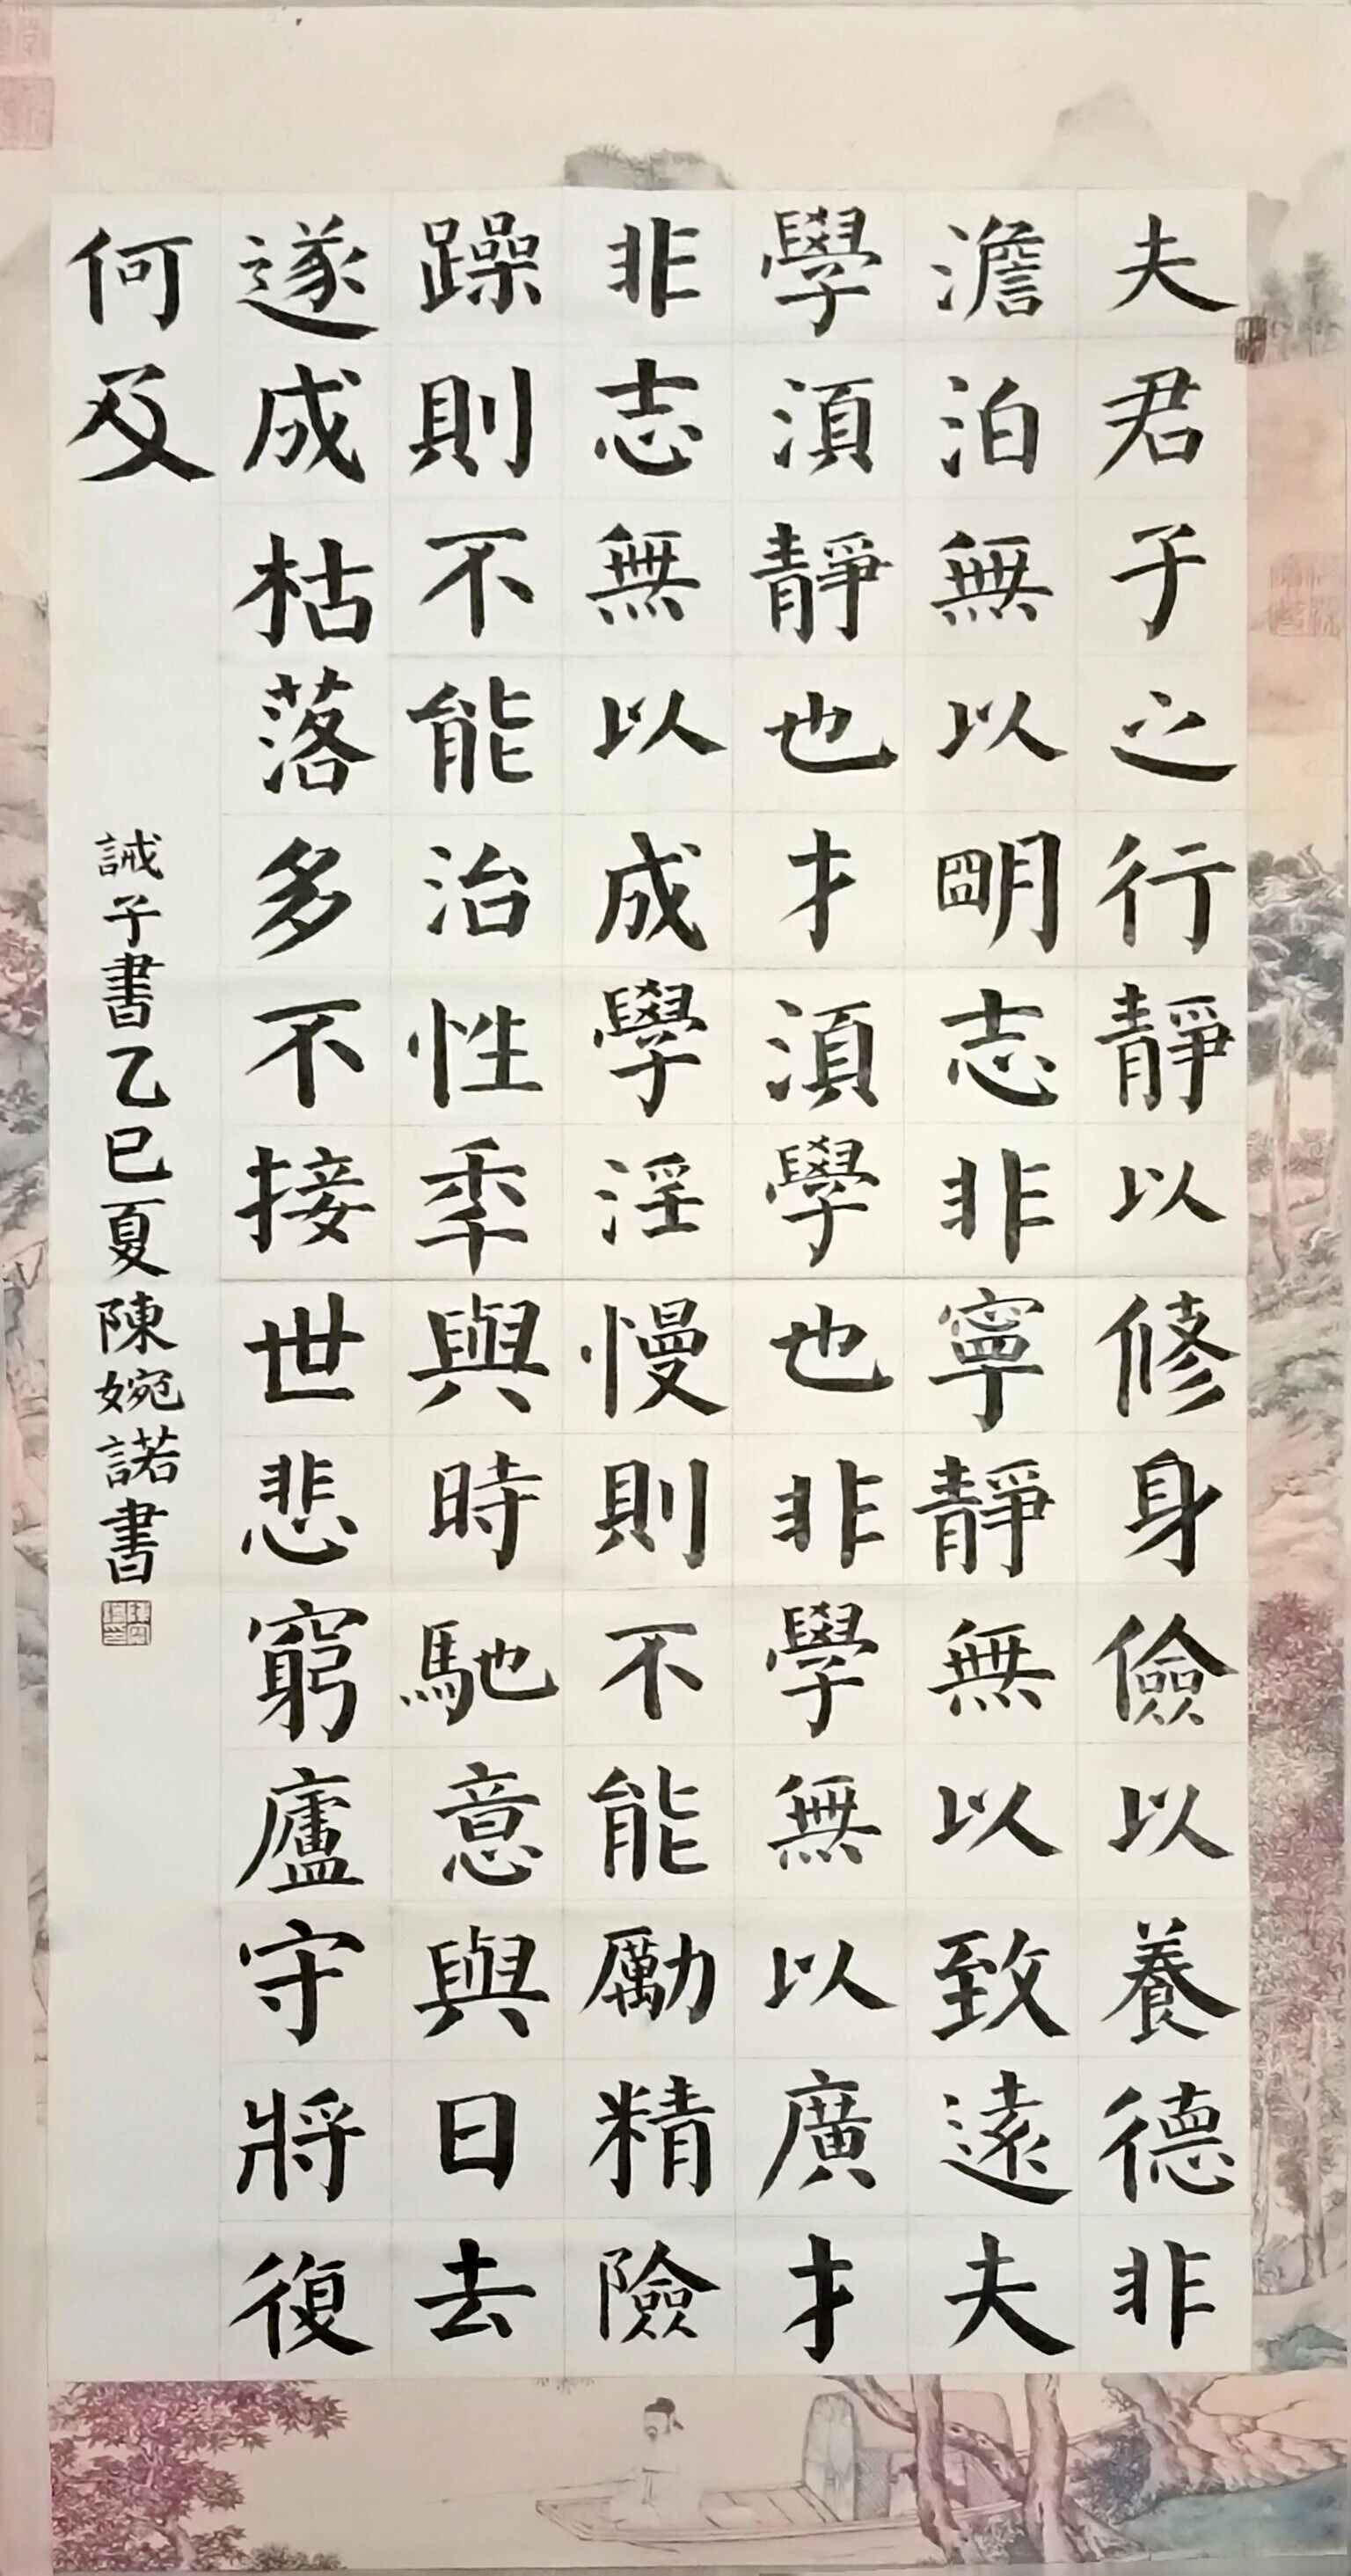 夫君子之行靜以修身儉以養德非
澹泊無以朙志非寧靜無以致遠夫
學湏靜也才湏學也非學無以廣才
非志無以成學淫慢則不能勵精險
躁則不能治性秊與時馳意與日去
遂成枯落多不接世悲窮廬守將復
何及
誡子書乙巳夏陳婉諾書